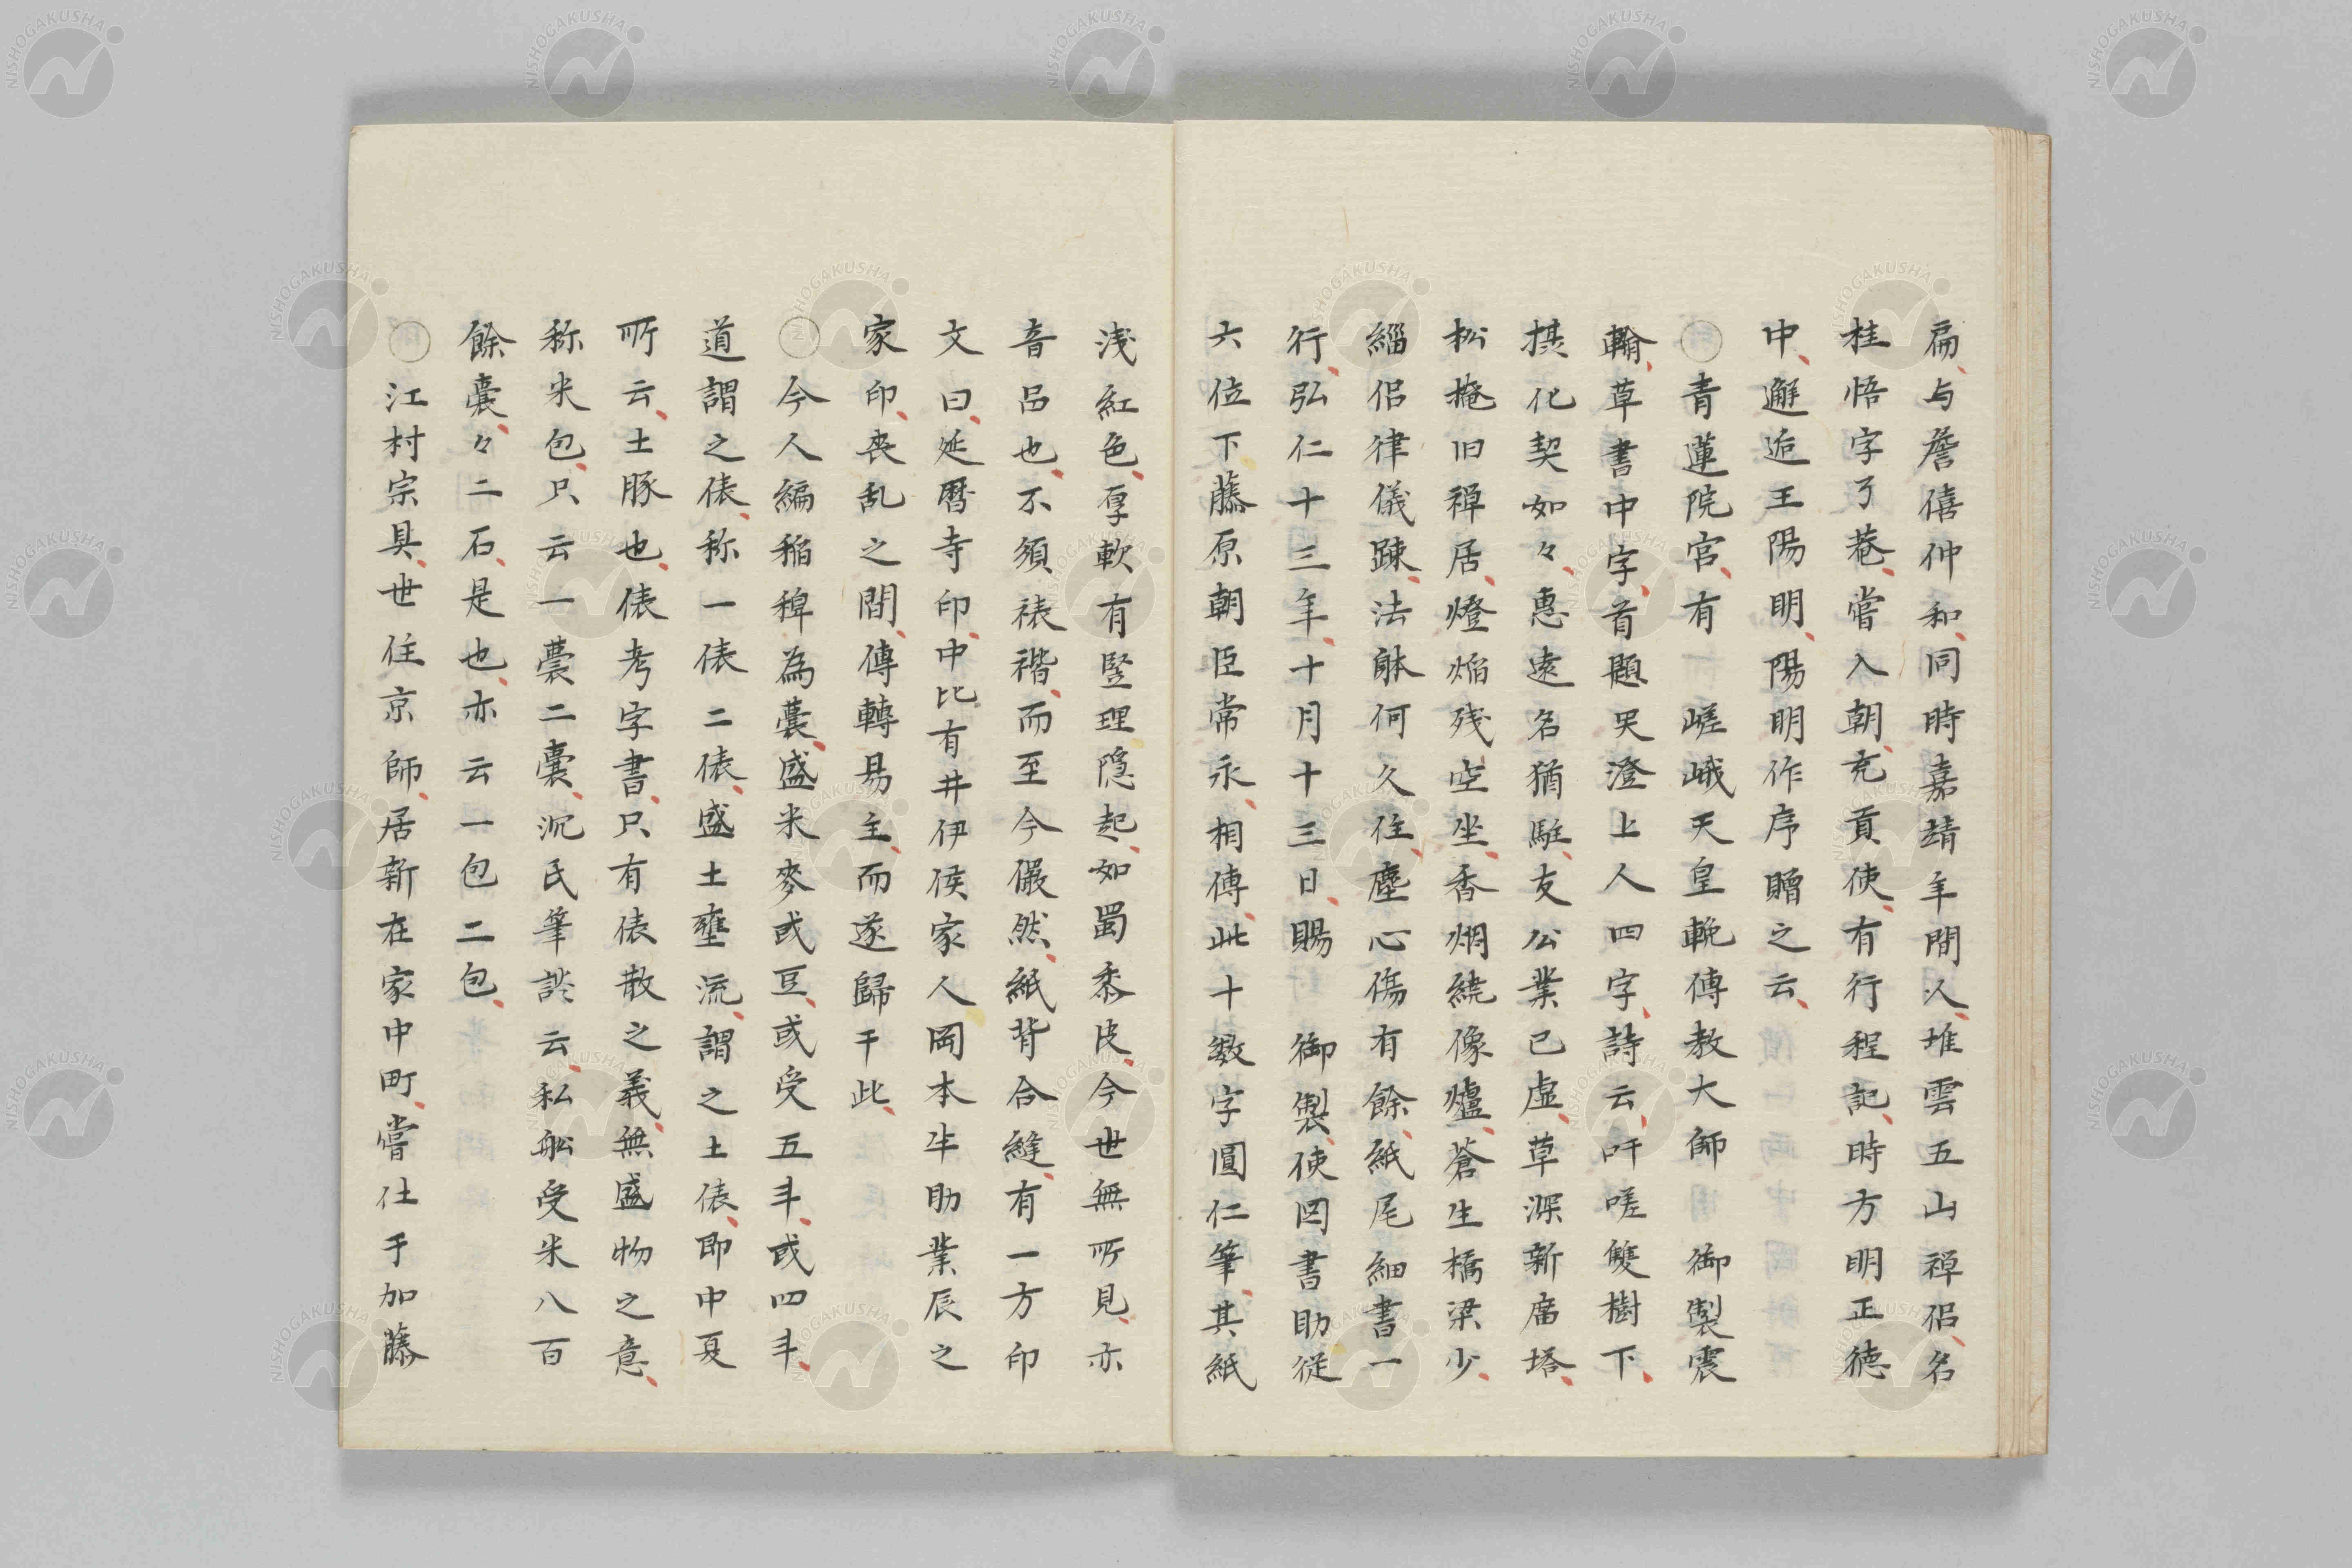 扁、与詹僖仲和、同時嘉靖年間人、堆雲五山禅侶、名
桂悟字了菴、嘗入朝、充貢使、有行程記、時方明正徳
中、邂逅王陽明、陽明作序贈之云、
○青蓮院宮、有嵯峨天皇輓傳教大師 御製震
翰、草書中字、首題哭澄上人四字、詩云、吁嗟雙樹下、
摸化契如々、惠遠名猶駐、友公業已虚、草深新廟塔、
松掩旧禅居、燈焔残空坐、香烟繞像爐、蒼生橋梁少、
緇侶律儀踈、法躰何久住、塵心傷有餘、紙尾細書一
行、弘仁十三年、十月十三日、賜 御製、使図書助従
六位下藤原朝臣常永、相傳、此十数字圓仁筆、其紙
浅紅色、厚軟有竪理隠起、如蜀黍皮、今世無所見、亦
音呂也、不須裱褙、而至今儼然、紙背合縫、有一方印
文曰、延暦寺印、中比有井伊侯家人岡本半助業辰之
家印、喪乱之間、傳轉易主、而遂歸于此、
○今人編稲稗為嚢、盛米麥或豆、或受五斗、或四斗、
道謂之俵、称一俵二俵、盛土壅流、謂之土俵、即中夏
所云、土豚也、俵考字書、只有俵散之義、無盛物之意、
称米包、只云一嚢二嚢、沉氏筆談云、私舩受米八百
餘嚢、々二石、是也、亦云一包二包、
○江村宗具、世住京師、居新在家中町、嘗仕于加藤